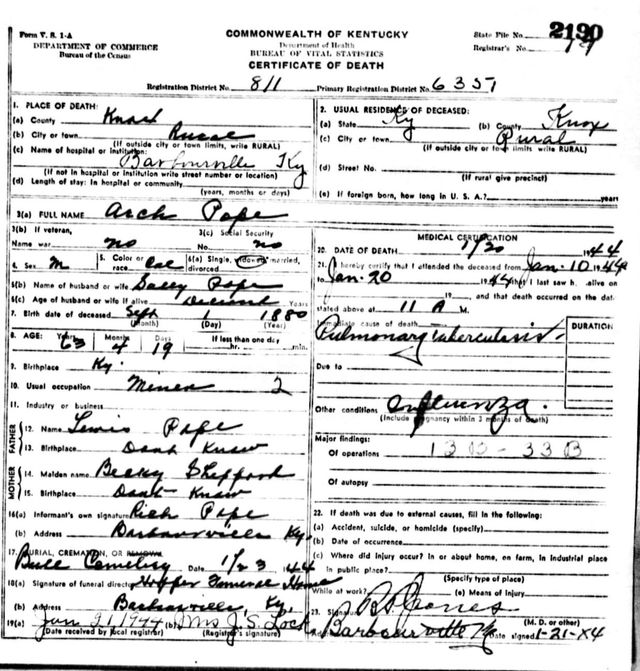 Form V. S. 1-A
DEPARTMENT OF COMMERCE
Bureau of the Census
COMMONWEALTH OF KENTUCKY
Department of Health
BUREAU OF VITAL STATISTICS
CERTIFICATE OF DEATH
State File No. 2190
Registrar's No. 19
Registration District No. 811 Primary Registration District No. 6357
1. PLACE OF DEATH:
(a) County Knox
(b) City or town Rural
(If outside city or town limits, write RURAL)
(c) Name of hospital or institution:
Barbourville Ky
(If not in hospital or institution write street number or location)
(d) Length of stay: In hospital or community
(years, months or days)
2. USUAL RESIDENCE OF DECEASED:
(a) State Ky (b) County Knox
(c) City or town Rural
(If outside city or town limits write RURAL)
(d) Street No.
(If rural give precinct)
(e) If foreign born, how long in U. S. A.? years
3(a) FULL NAME Arch Pope
3(b) If veteran,
Name war no
3(c) Social Security
No. no
4. Sex M
5. Color or race Col
6(a) Single, widowed, married, divorced
6(b) Name of husband or wife Sally Pope
6(c) Age of husband or wife if alive Deceased Years
7. Birth date of deceased Sept 1 1880
(Month) (Day) (Year)
8. AGE: Years 63 Months 4 Days 19 If less than one day
hr. min.
9. Birthplace Ky.
10. Usual occupation Miner 2
11. Industry or business
FATHER
12. Name Lewis Pope
13. Birthplace Dont Know
MOTHER
14. Maiden name Becky Sheppard
15. Birthplace Dont Know
16(a) Informant's own signature Rich Pope
(b) Address Barbourville Ky.
17. BURIAL, CREMATION, OR REMOVAL
Bull Cemetery 1/23 44
18(a) Signature of funeral director Hopper Funeral Home
(b) Address Barbourville, Ky.
19(a) Jan 21 1944 (b) Mrs J. S. Lock
(Date received by local registrar) (Registrar's signature)
MEDICAL CERTIFICATION
20. DATE OF DEATH 1/20 1944
21. I hereby certify that I attended the deceased from Jan. 10 1944
to Jan. 20 1944 that I last saw h alive on
19 and that death occurred on the date
stated above at 11 A M.
Immediate cause of death
DURATION
Pulmonary tuberculosis
Due to
Other conditions Influenza.
(Include pregnancy within 3 months of death)
Major findings:
Of operations 13B-33B
Of autopsy
22. If death was due to external causes, fill in the following:
(a) Accident, suicide, or homicide (specify)
(b) Date of occurrence
(c) Where did injury occur? In or about home, on farm, in industrial place
in public place?
(Specify type of place)
While at work? (e) Means of injury
23. Signature Jones
(M. D. or other)
Barbourville Ky Date signed 1-21-44